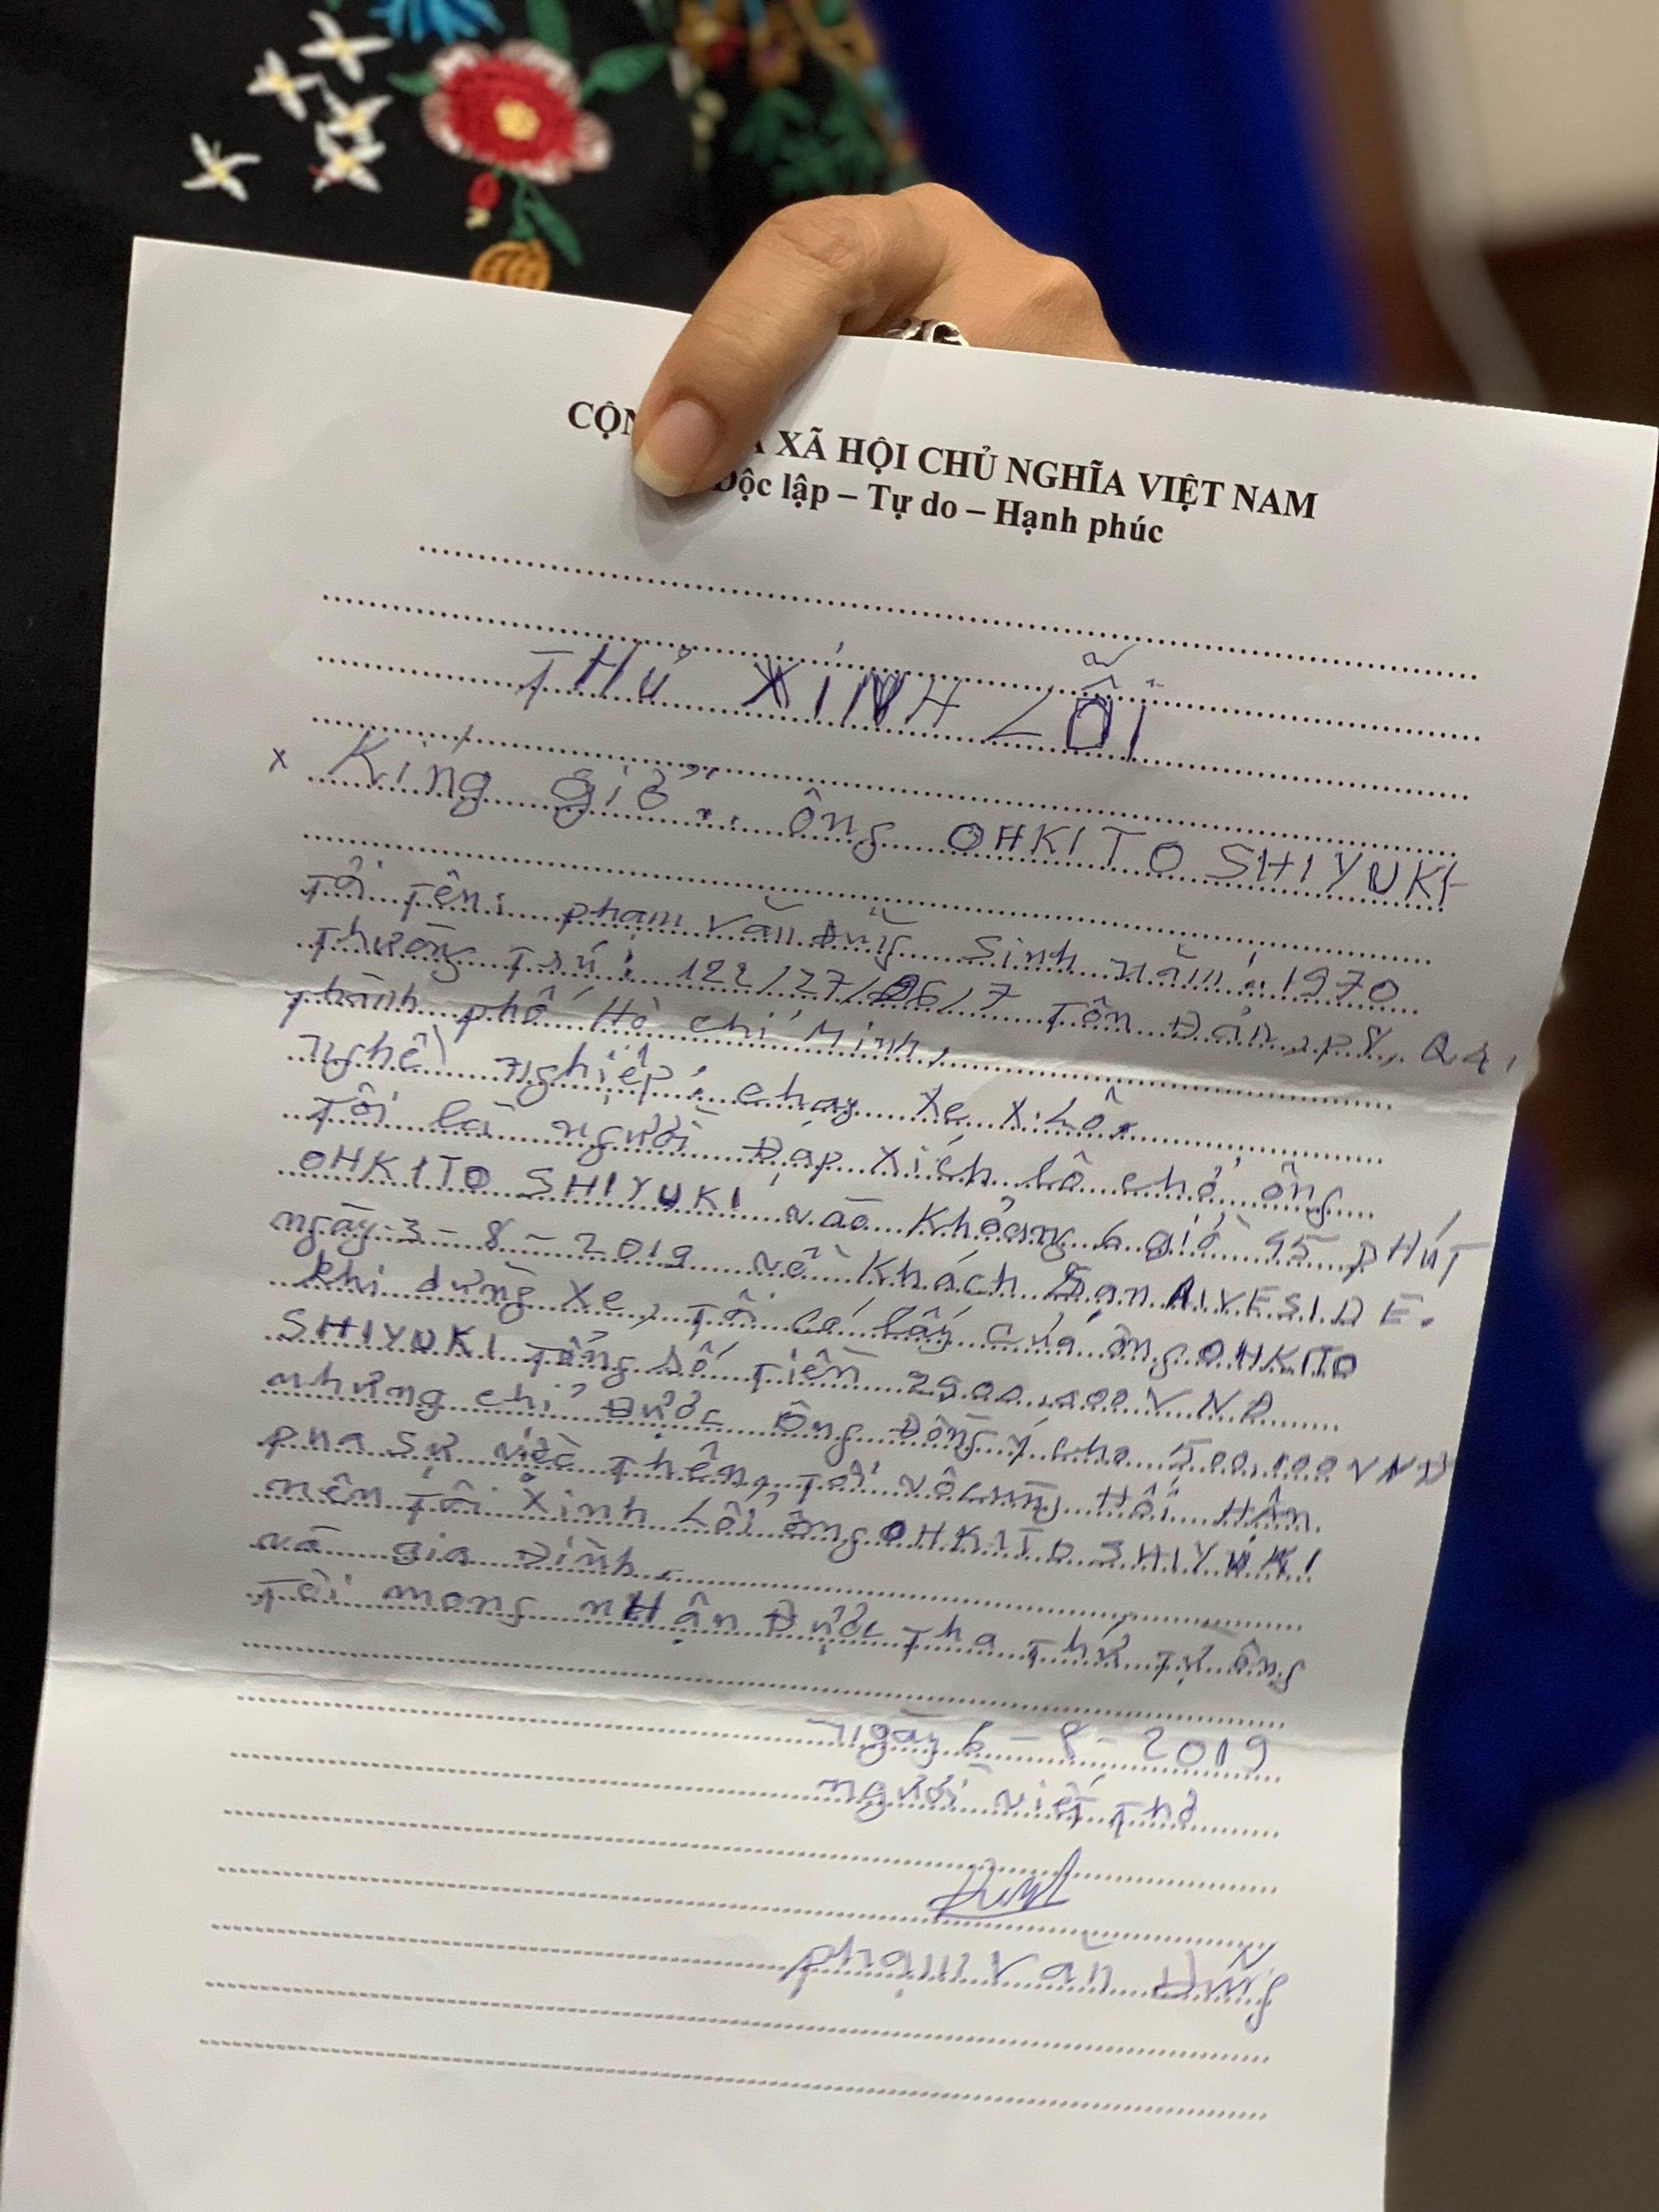 CỘN XÃ HỘI CHỦ NGHĨA VIỆT NAM
Độc lập – Tự do – Hạnh phúc
THƯ XINH LỖI
x Kíng giở: ông OHKITO SHIYUKI
Tôi Tên: phạm văn Đũng Sinh năm: 1970
Thường Trú: 122/27/26/7 Tôn Đản, p8, Q4,
Thành phố Hồ chí Minh,
nghề nghiệp: chạy xe x.Lô.
Tôi là người Đạp xích lô chở ông
OHKITO SHIYUKI vào Khoảng 6 giờ 45 pHÚT
ngày 3-8-2019 về Khách Sạn RIVESIDE.
khi dừng xe, Tôi có lấy của ông OHKITO
SHIYUKI Tổng số Tiền 2900.000 VNĐ
nhưng chỉ Được ông Đồng ý cho 500.000 VNĐ
pua sự việc Thên, Tôi vô cùng HỐI HẬN
nên Tôi xinh Lỗi ông OHKITO SHIYUKI
và gia Đình.
Tôi mong nHận Được Tha Thứ Từ ông
ngày 6-8-2019
người viết Thơ
phạm văn Đũng